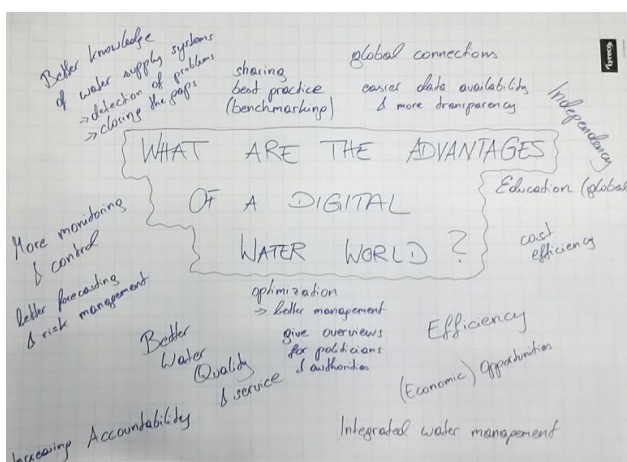 Better knowledge
of water supply systems
→ detection of problems
→ closing the gaps
sharing
best practice
(benchmarking)
global connections
easier data availability
& more transparency
Independency
WHAT ARE THE ADVANTAGES
OF A DIGITAL
WATER WORLD?
Education (global
cost
efficiency
More monitoring
& control
better forecasting
& risk management
optimization
→ better management
give overviews
for politicians
& authorities
Better
Water
Quality
& service
Efficiency
(Economic) opportunities
Increasing Accountability
Integrated water management